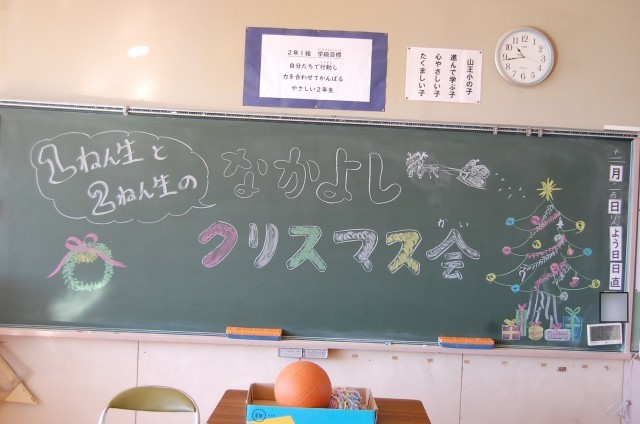 2年1組 学級目標
自分たちで行動し
力を合わせてがんばる
やさしい2年生
山王小の子
進んで学ぶ子
心やさしい子
たくましい子
1ねん生と
2ねん生の
なかよし
クリスマス会
かい
月
日
よう日
日直